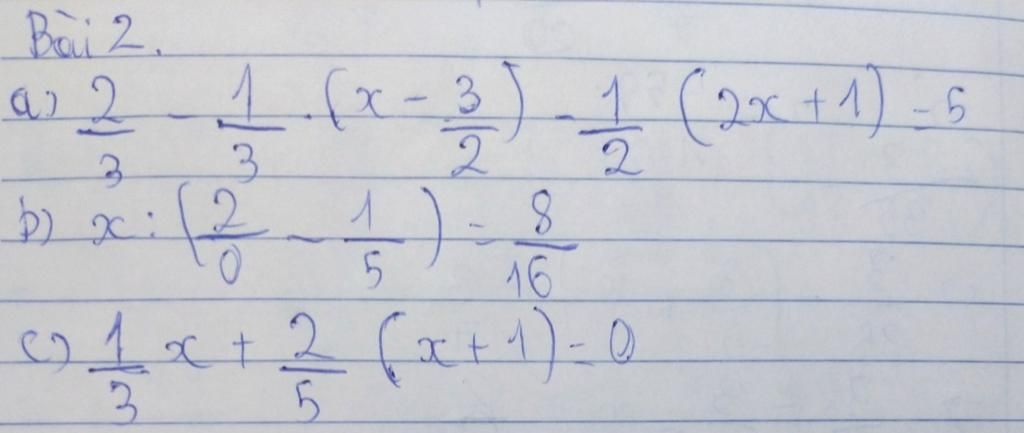 Bài 2.
a) 2/3 - 1/3 . (x - 3/2) - 1/2 (2x + 1) = 5
b) x : (2/0 - 1/5) = 8/16
c) 1/3 x + 2/5 (x + 1) = 0